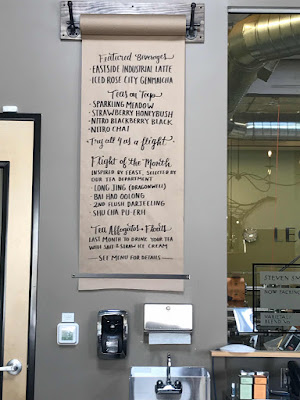 Featured Beverages
EASTSIDE INDUSTRIAL LATTE
ICED ROSE CITY GENMAICHA
Teas on Tap
SPARKLING MEADOW
STRAWBERRY HONEYBUSH
NITRO BLACKBERRY BLACK
NITRO CHAI
Try all 4 as a flight.
Flight of the Month
INSPIRED BY FEAST, SELECTED BY
OUR TEA DEPARTMENT
LONG JING (DRAGONWELL)
BAI HAO OOLONG
2ND FLUSH DARJEELING
SHU CHA PU-ERH
Tea Affogatos + Floats
LAST MONTH TO DRINK YOUR TEA
WITH SALT & STRAW ICE CREAM
— SEE MENU FOR DETAILS —
LE
STEVEN SM